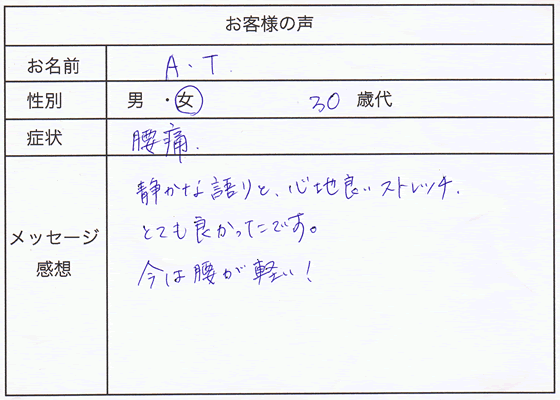 お客様の声
お名前 A・T.
性別 男・女 30 歳代
症状 腰痛.
メッセージ
感想
静かな語りと、心地良いストレッチ.
とても良かったです。
今は腰が軽い!